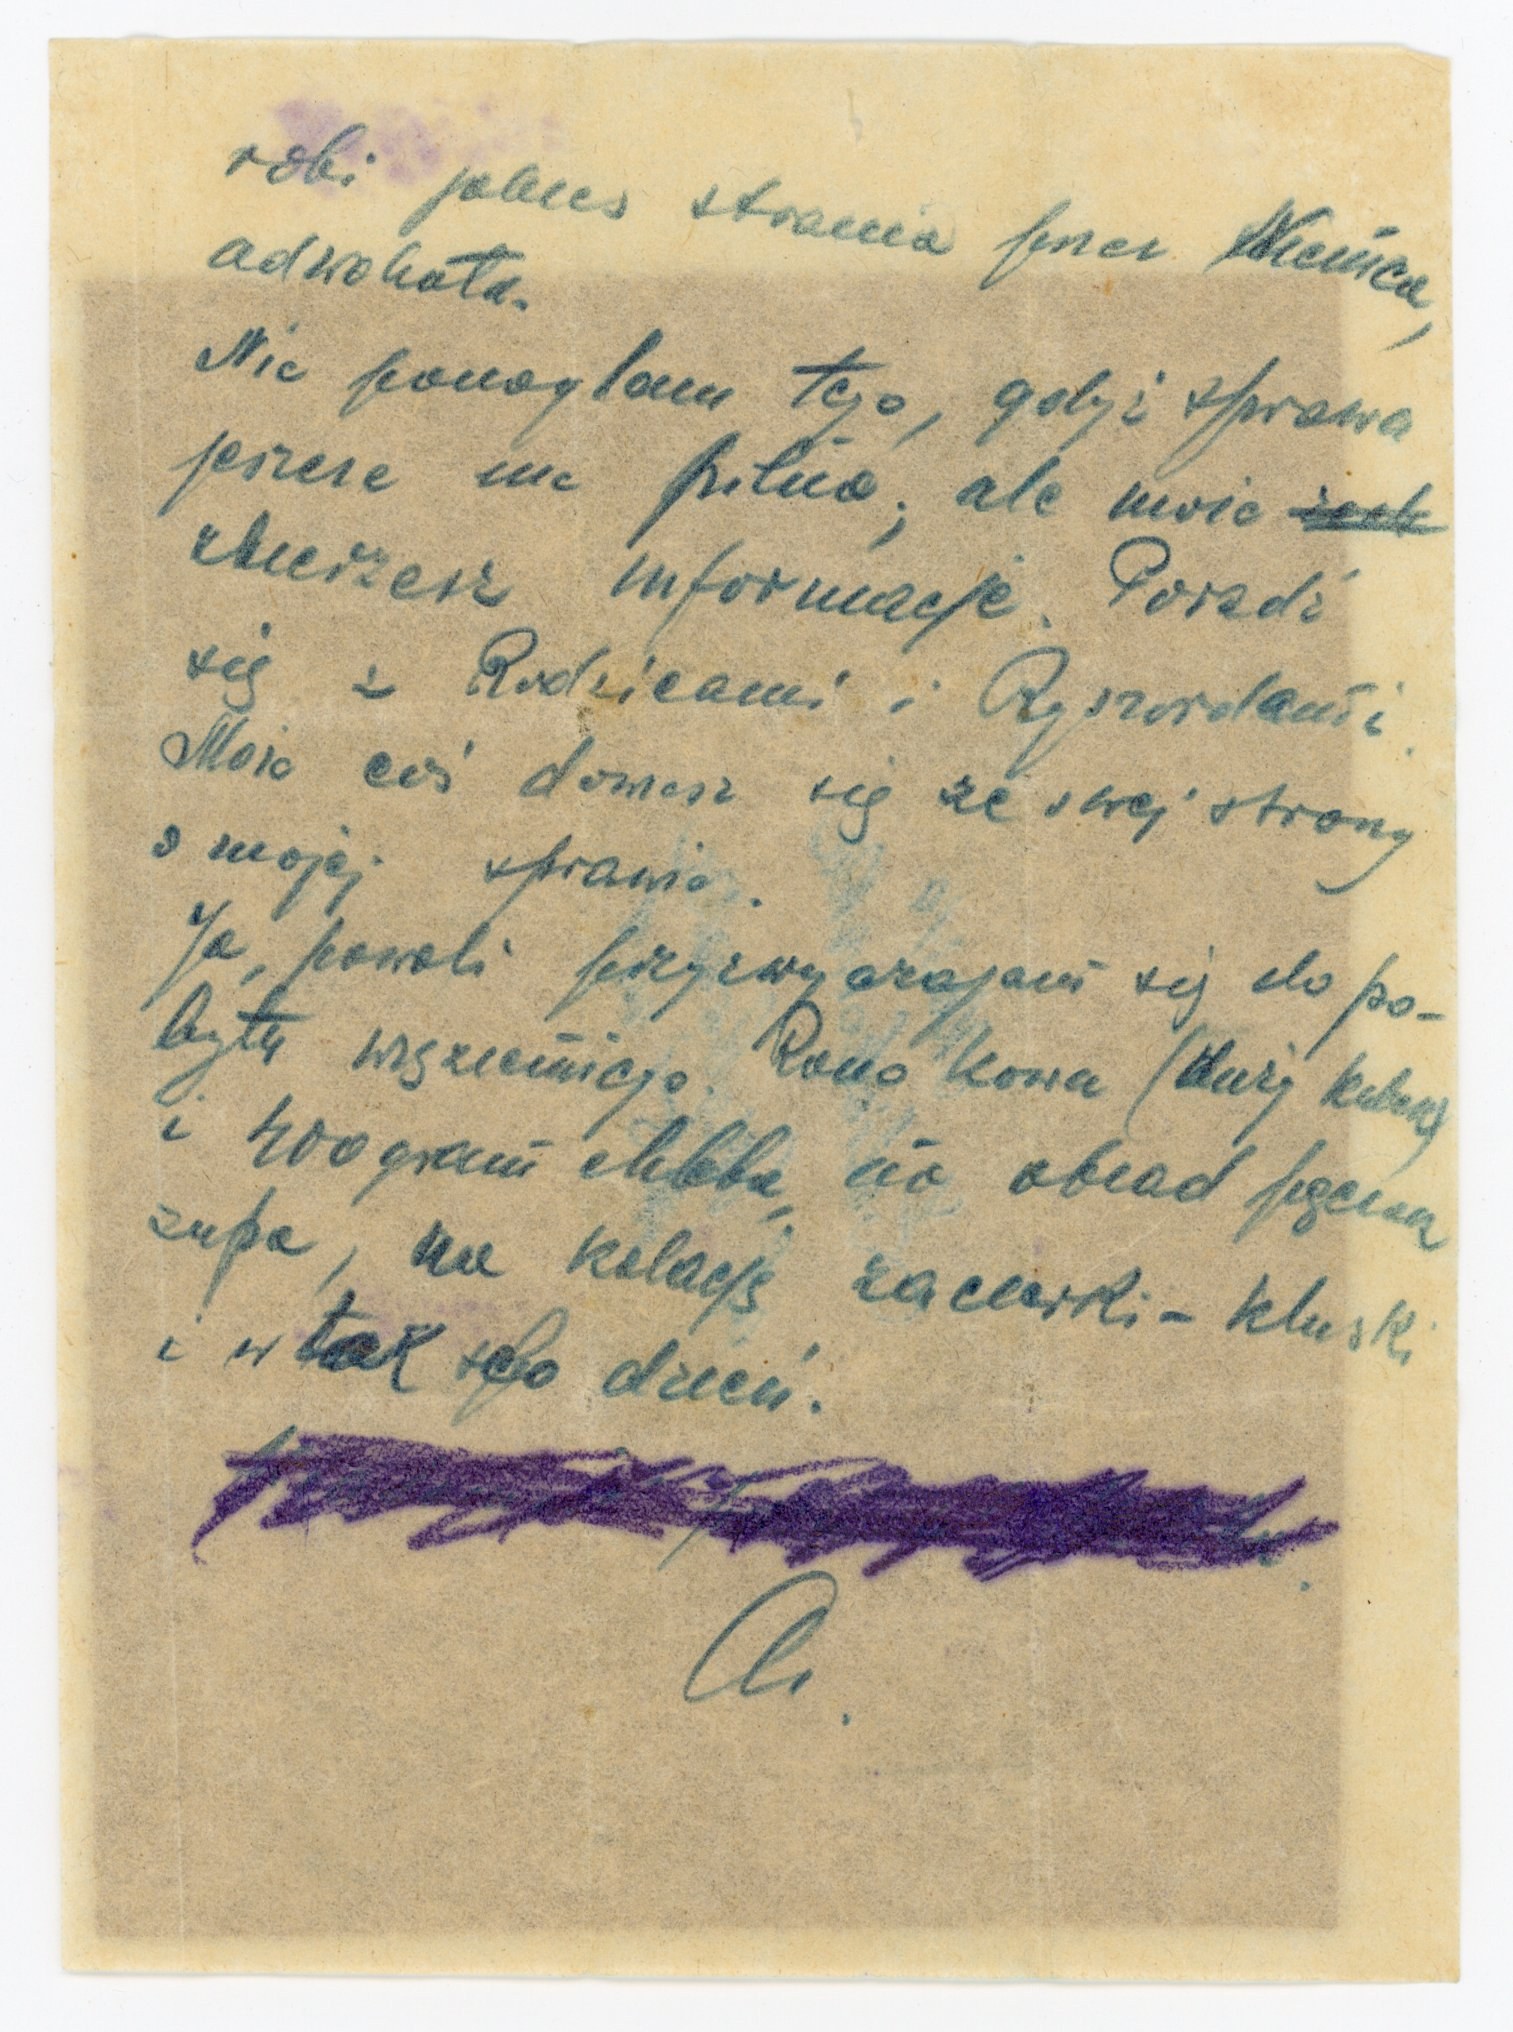 robi jakieś starania przez Niemca,
adwokata.
Nie ponaglam tego, gdyż sprawa
jeszcze nie pilna, ale może
zbierzesz informacje. Poradź
się z Rodzicami i Ryszardami.
Może coś dowiesz się ze swej strony
o mojej sprawie.
Ja, powoli przyzwyczajam się do po-
bytu więziennego. Rano kawa (duży kubek)
i 400 gram chleba, na obiad pęczak
zupa, na kolację zacierki - kluski
i w tak co dzień.